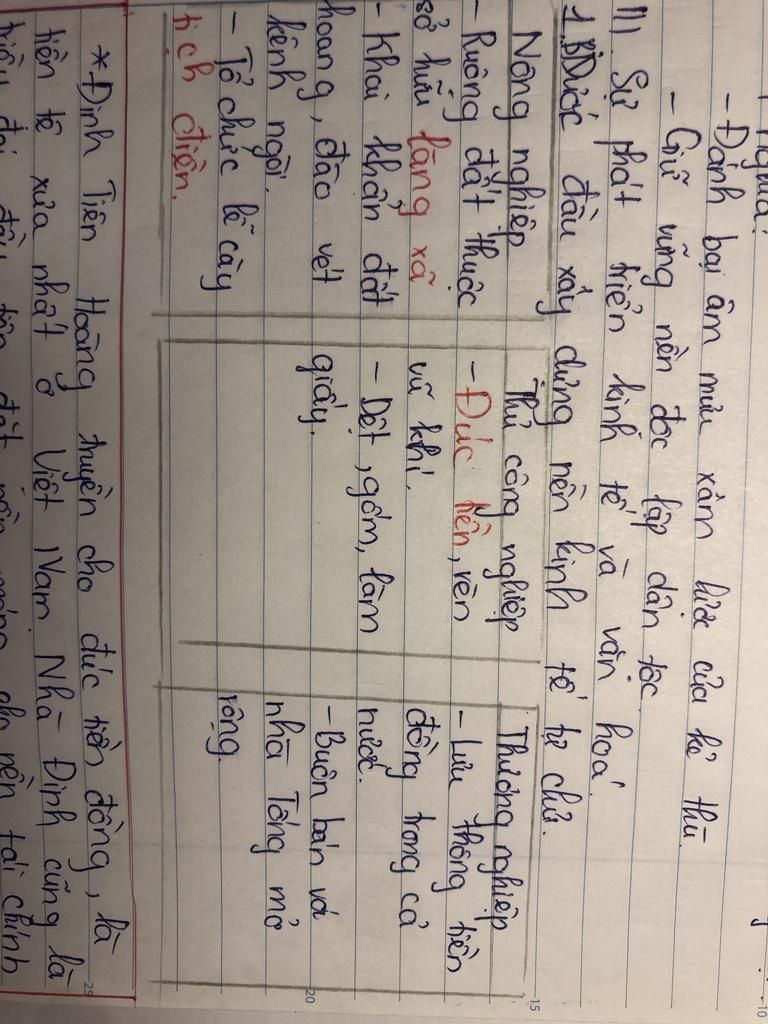 nghĩa:
- Đánh bại âm mưu xâm lược của kẻ thù.
- Giữ vững nền độc lập dân tộc.
III. Sự phát triển kinh tế và văn hoá.
1. Bước đầu xây dựng nền kinh tế tự chủ.
Nông nghiệp
- Ruộng đất thuộc
sở hữu làng xã
- Khai khẩn đất
hoang, đào vét
kênh ngòi.
- Tổ chức lễ cày
tịch điền.
Thủ công nghiệp
- Đúc tiền, rèn
vũ khí.
- Dệt, gốm, làm
giấy.
Thương nghiệp
- Lưu thông tiền
đồng trong cả
nước.
- Buôn bán với
nhà Tống mở
rộng.
* Đinh Tiên Hoàng truyền cho đúc tiền đồng, là
tiền tệ xưa nhất ở Việt Nam Nhà Đinh cũng là
triều đại đầu tiên đặt nền móng cho nền tài chính
10
15
20
25